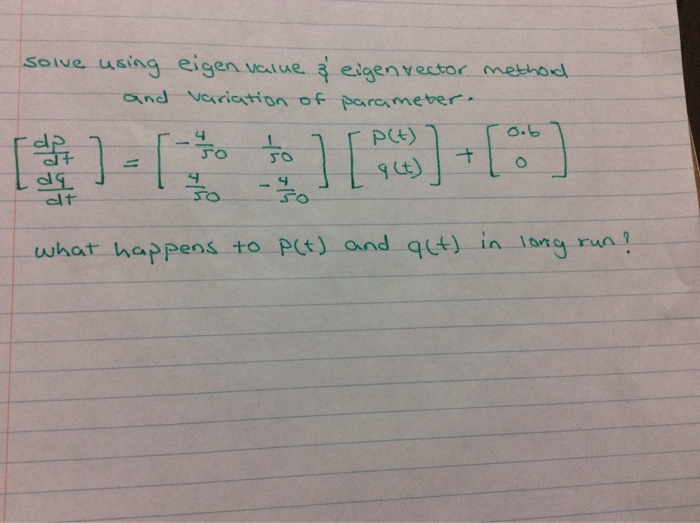 solve using eigen value & eigenvector method
and variation of parameter.
[dp/dt dq/dt] = [-4/50 1/50 4/50 -4/50] [p(t) q(t)] + [0.6 0]
what happens to p(t) and q(t) in long run?